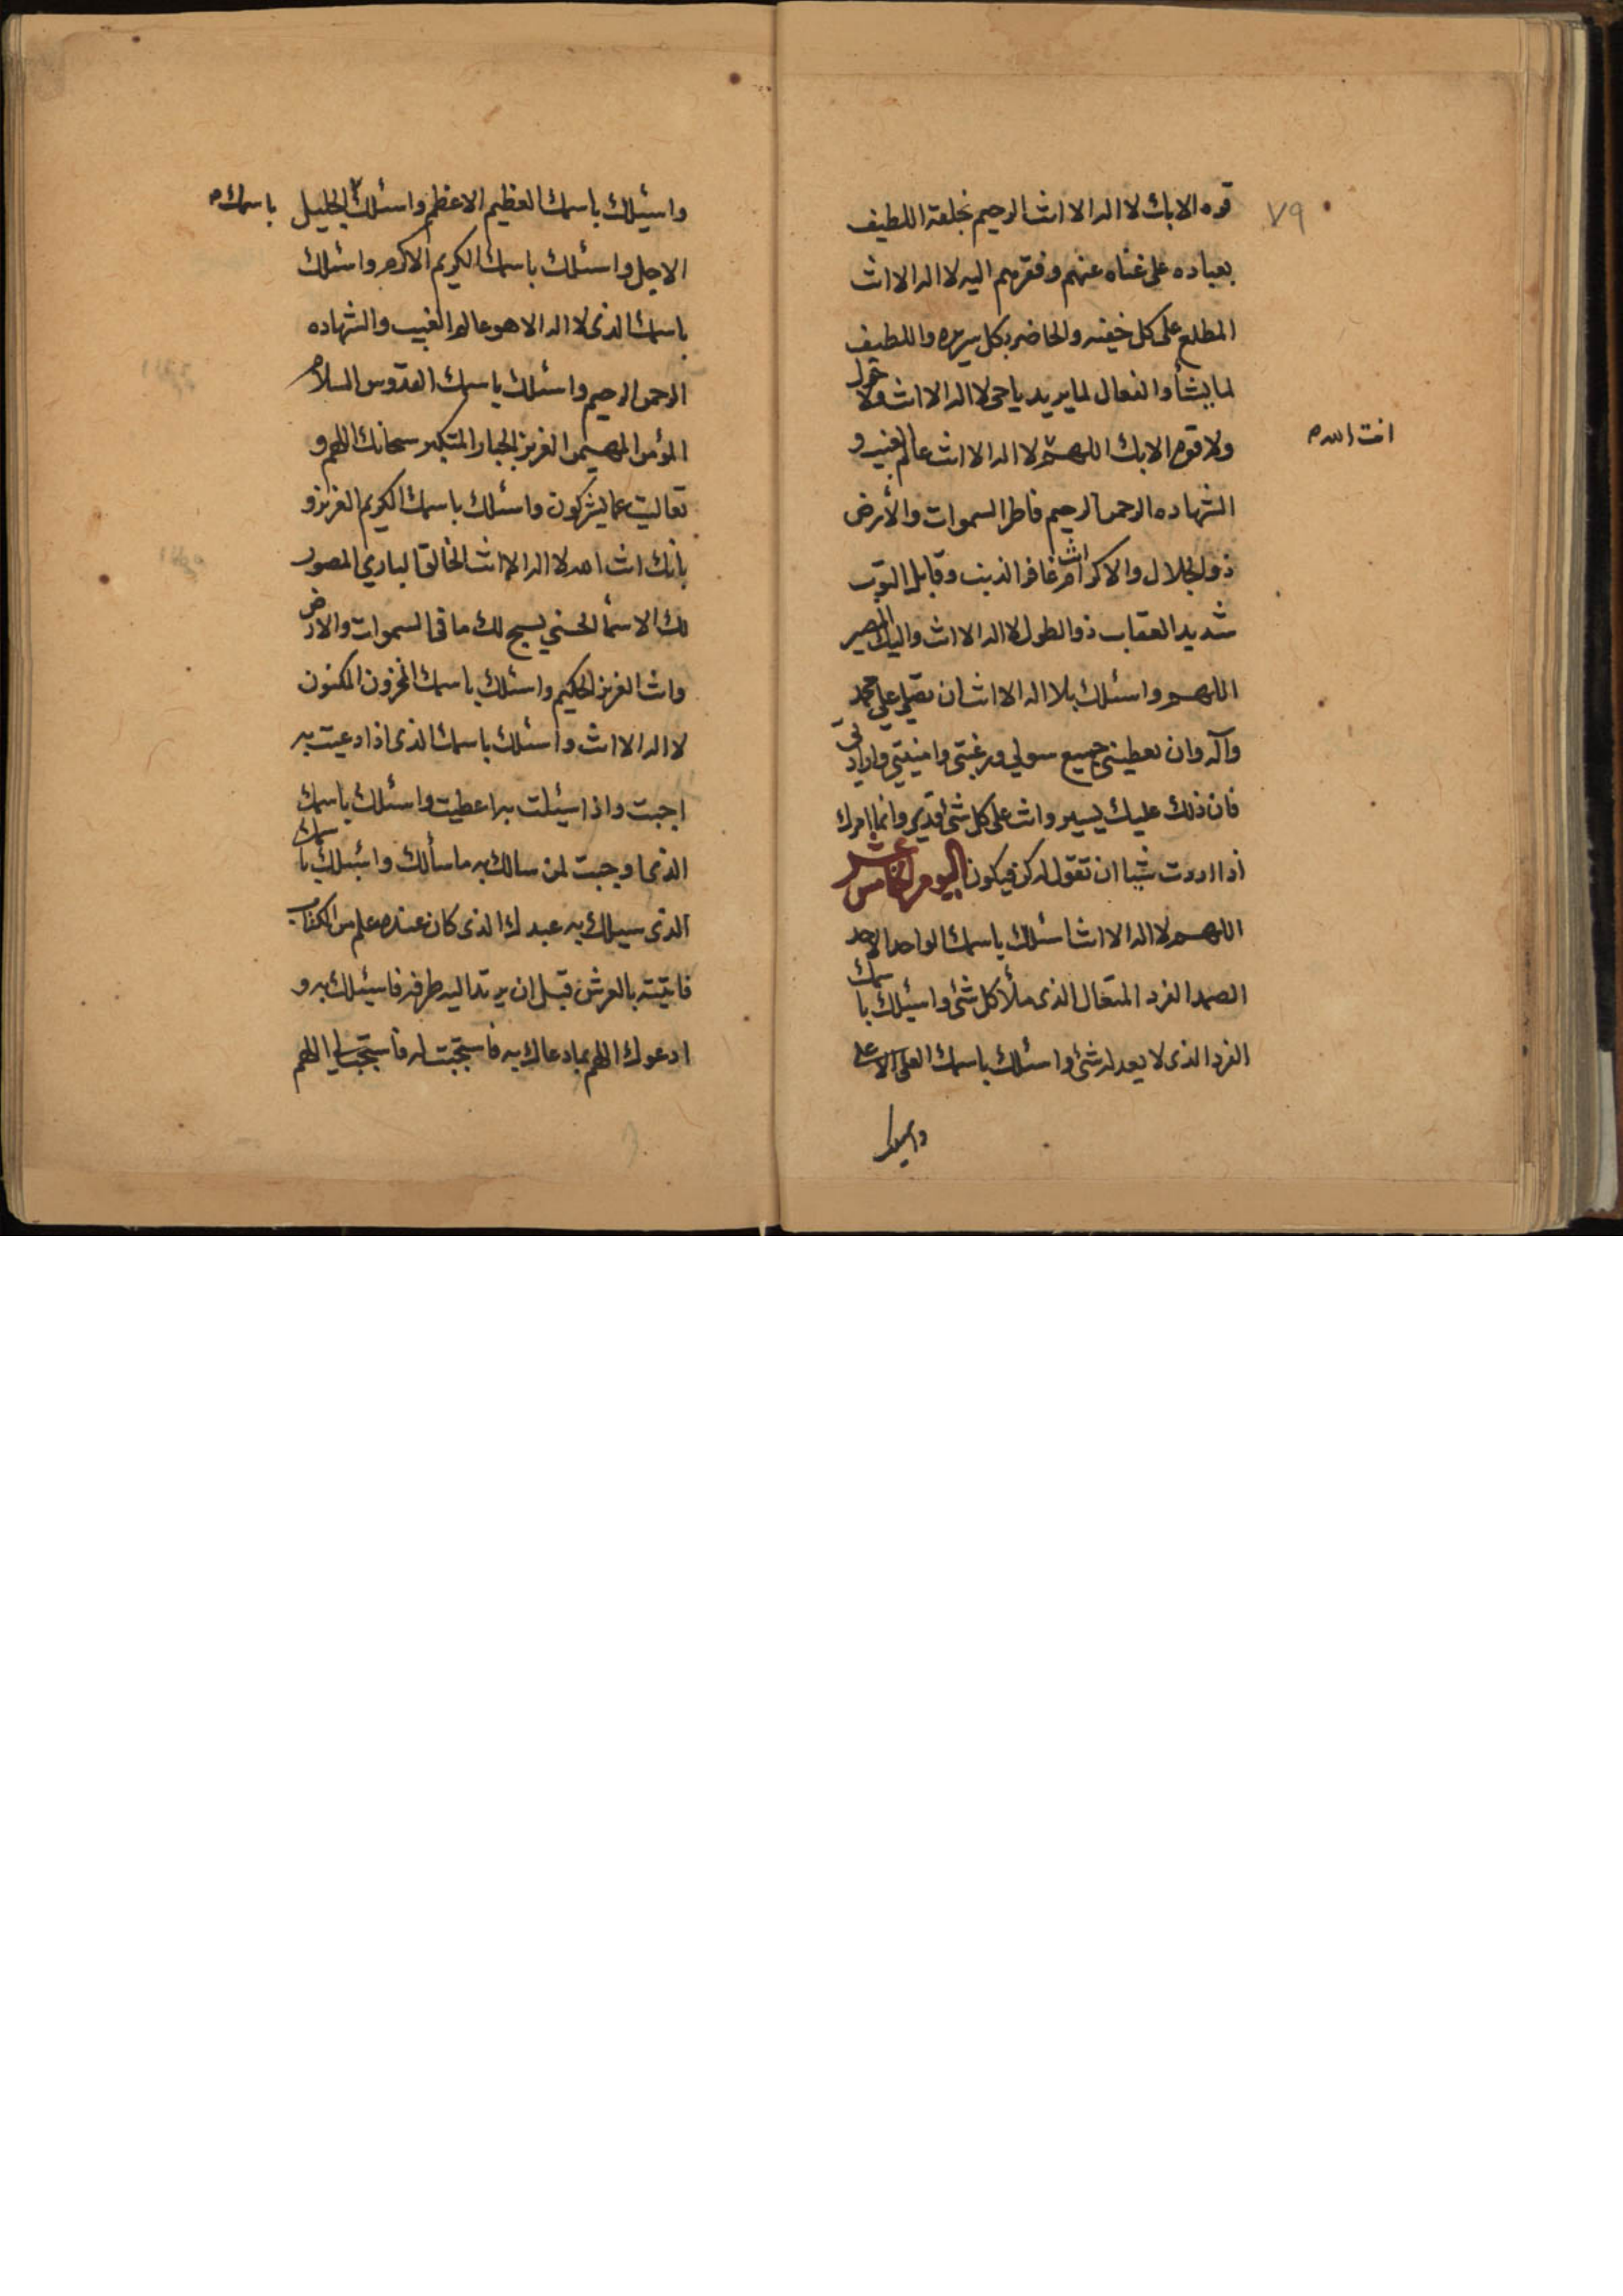 ٧٩
قوه الا بك لا اله الا انت الرحيم بخلقه اللطيف
بعباده على غناه عنهم وفقرهم اليه لا اله الا انت
المطلع على كل خفيه والحاضر بكل سريره واللطيف
لما يشأ والفعال لما يريد يا حى لا اله الا انت ولا حول
ولا قوه الا بك اللهم لا اله الا انت عالم الغيب و
انت الله
الشهاده الرحمن الرحيم فاطر السموات والأرض
ذو الجلال والاكرام انت غافر الذنب وقابل التوب
شديد العقاب ذو الطول لا اله الا انت واليك المصير
اللهم واسئلك بلا اله الا انت ان تصلي على محمد
وآله وان تعطيني جميع سولي ورغبتى وامنيتي وارادتى
فان ذلك عليك يسير وانت على كل شئ قدير وانما امرك
اذا اردت شيا ان تقول له كن فيكون اليوم الخامس عشر
اللهم لا اله الا انت اسئلك باسمك الواحد الاحد
الصمد الفرد المتعال الذى ملأ كل شئ واسئلك باسمك
الفرد الذى لا يعدله شئ واسئلك باسمك العلى الاعلى
واسئلك
واسئلك باسمك العظيم الاعظم واسئلك الجليل
باسمك
الاجل واسئلك باسمك الكريم الاكرم واسئلك
باسمك الذى لا اله الا هو عالم الغيب والشهاده
الرحمن الرحيم واسئلك باسمك القدوس السلام
المؤمن المهيمن العزيز الجبار المتكبر سبحانك اللهم و
تعاليت عما يشركون واسئلك باسمك الكريم العزيز و
بانك انت الله لا اله الا انت الخالق الباري المصور
لك الاسمأ الحسني يسبح لك ما فى السموات والارض
وانت العزيز الحكيم واسئلك باسمك المخزون المكنون
لا اله الا انت واسئلك باسمك الذى اذا دعيت به
اجبت واذا سئلت به اعطيت واسئلك باسمك
الذى اوجبت لمن سالك به ما سألك واسئلك باسمك
الذى سيلك به عبدك الذى كان عنده علم من الكتاب
فاتيته بالعرش قبل ان يرتد اليه طرفه فاسئلك به و
ادعوك اللهم بما دعاك به فاستجبت له فاستجب لي اللهم